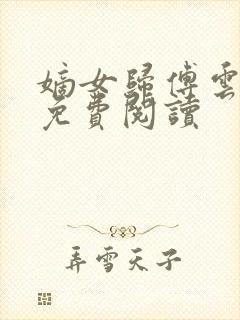 嫡女歸傅雲
免費閱讀
弄雪天子